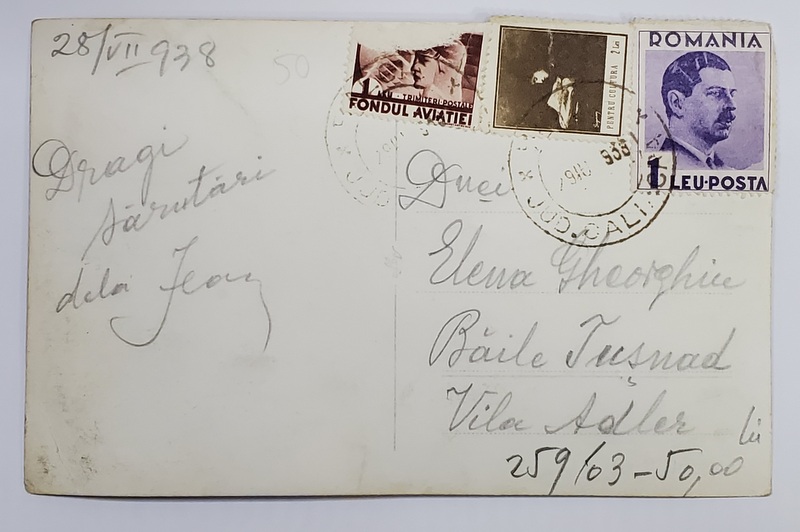 28/VII 938
50
Dragi
sărutări
dela Jean
1 LEU - TRIMITERI POSTALE
FONDUL AVIATIEI
PENTRU CULTURA 2 Lei
ROMANIA
1 LEU·POSTA
JUD. CALI
Dnei
Elena Gheorghiu
Băile Tușnad
Vila Adler
259/03-50,00 lei